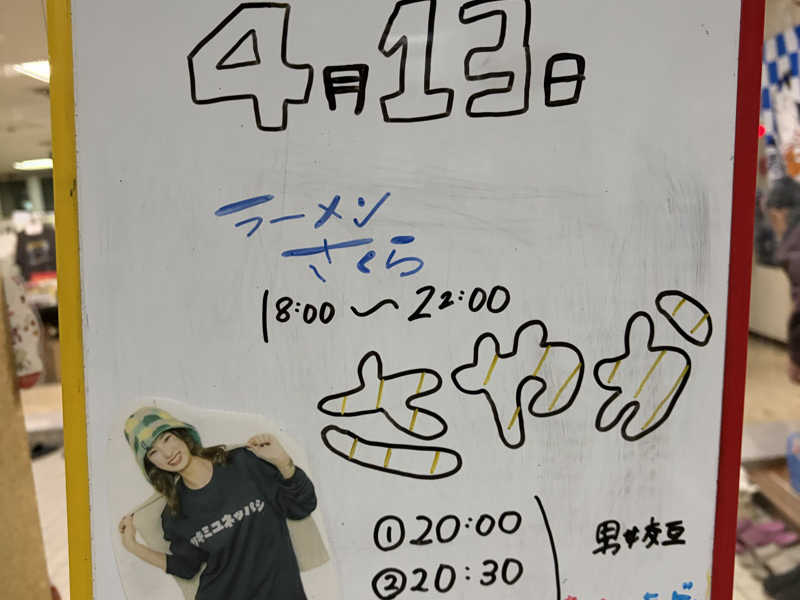 4月13日
ラーメン
さくら
18:00〜22:00
さやか
①20:00
②20:30
男女交互
サキミユネッパシ